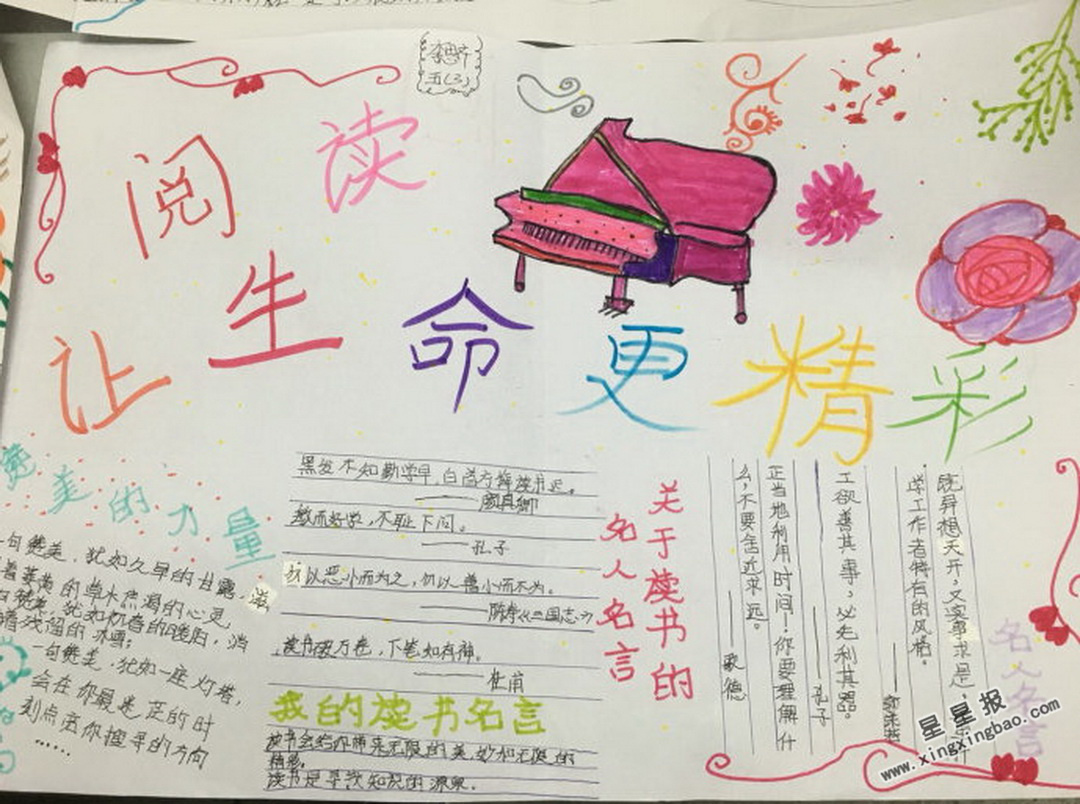 五(3)
阅读
让生命更精彩
赞美的力量
一句赞美，犹如久旱的甘露，滋
着萎黄的草木焦渴的心灵，
句赞美，犹如初春的暖阳，消
着残留的冰雪；
一句赞美，犹如一座灯塔，
会在你最迷茫的时
刻点亮你搜寻的方向
……
黑发不知勤学早，白首方悔读书迟。
——颜真卿
敏而好学，不耻下问。
——孔子
以恶小而为之，勿以善小而不为。
——陈寿《三国志》
读书破万卷，下笔如有神。
——杜甫
我的读书名言
读书会给你带来无限的美妙和无限的
精彩。
读书是寻找知识的源泉。
关于读书的
名人名言
既异想天开，又实事求是，
学工作者特有的风格。
工欲善其事，必先利其器。
——孔子
正当地利用时间！你要理解什
么，不要舍近求远。
——歌德
名人名言
星星报
www.xingxingbao.com